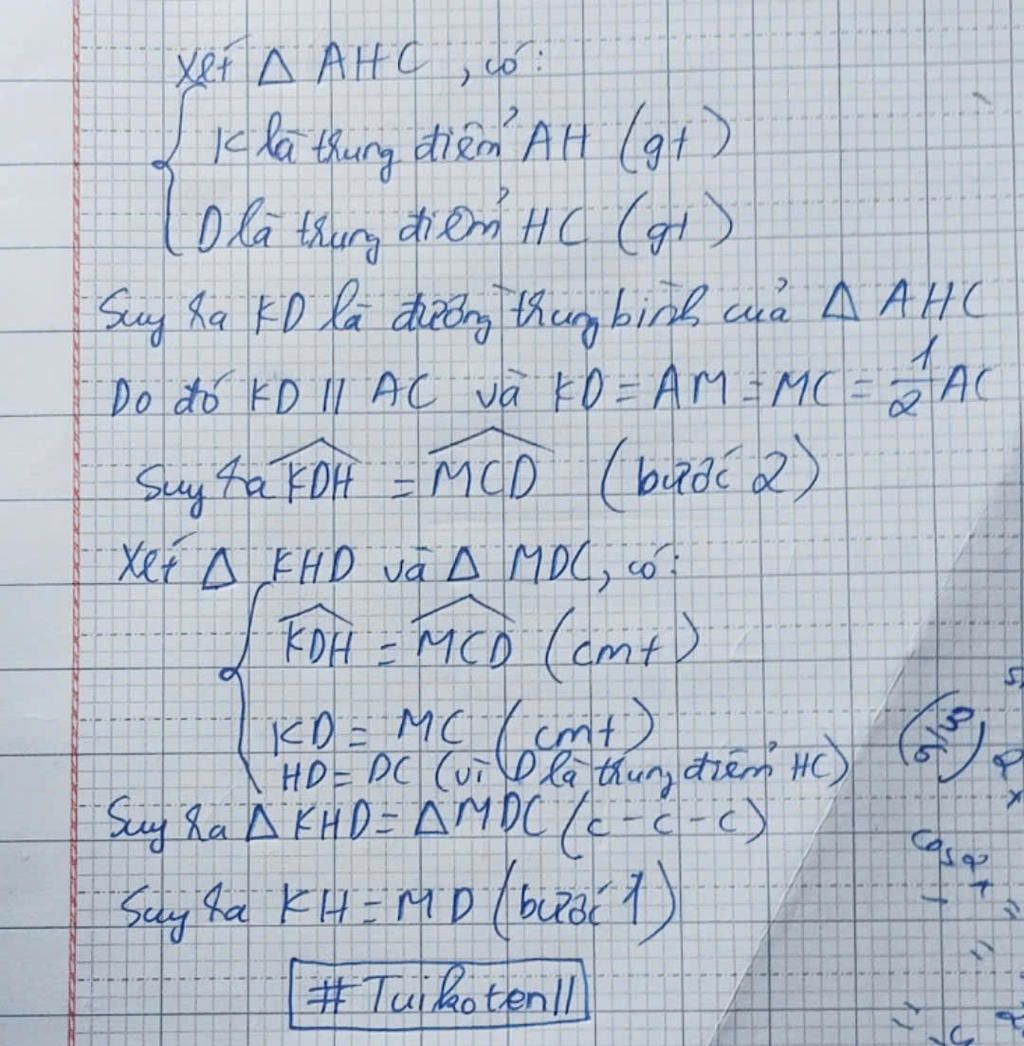 Xét Δ AHC, có:
K là trung điểm AH (gt)
D là trung điểm HC (gt)
Suy ra KD là đường trung bình của Δ AHC
Do đó KD // AC và KD = AM = MC = 1/2 AC
Suy ra \widehat{KDH} = \widehat{MCD} (bước 2)
Xét Δ KHD và Δ MDC, có:
\widehat{KDH} = \widehat{MCD} (cmt)
KD = MC (cmt)
HD = DC (vì D là trung điểm HC)
Suy ra Δ KHD = Δ MDC (c-c-c)
Suy ra KH = MD (bước 1)
#Tuikoten//